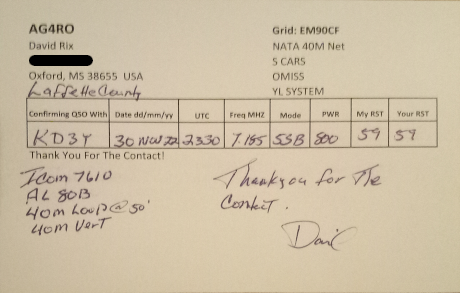 AG4RO
David Rix
Oxford, MS 38655 USA
Laffette County
Grid: EM90CF
NATA 40M Net
S CARS
OMISS
YL SYSTEM
Confirming QSO With Date dd/mm/yy UTC Freq MHZ Mode PWR My RST Your RST
KD3Y 30 Nov 22 2330 7.185 SSB 800 59 59
Thank You For The Contact!
Icom 7610
AL 80B
40m Loop @ 50'
40m Vert
Thank you for The
Contact.
David